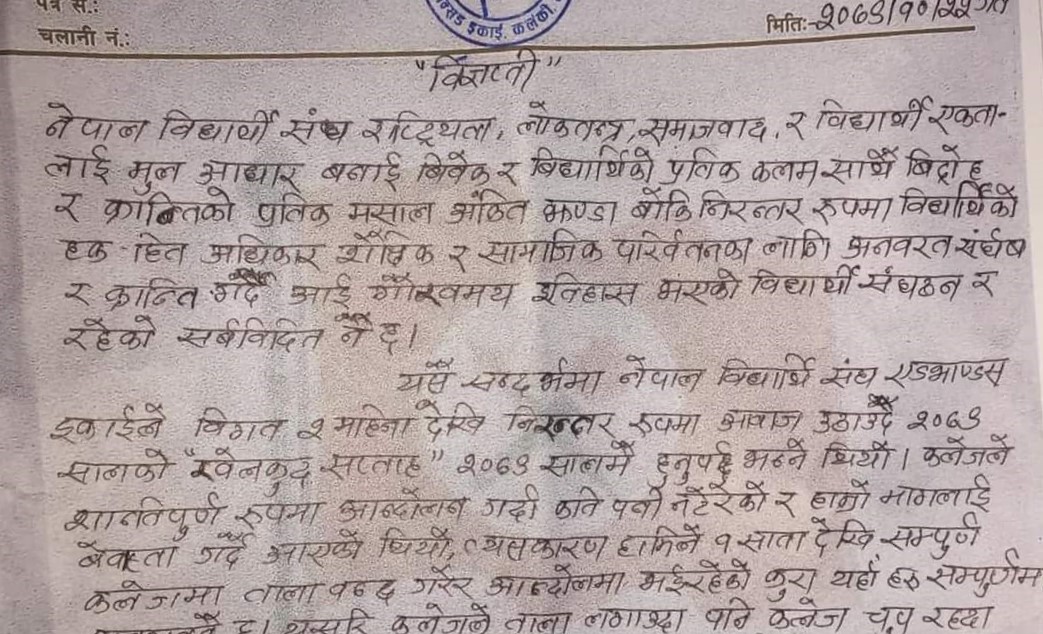 पत्र सं.:
न्सड इकाई, कलंकी,
मितिः-२०६९/१०/२२ गते
चलानी नं.:
"विज्ञप्ती"
नेपाल विद्यार्थी संघ राष्ट्रियता, लोकतन्त्र, समाजवाद, र विद्यार्थी एकता-
लाई मुल आधार बनाई बिवेक र बिद्यार्थिको प्रतिक कलम साथै बिद्रोह
र क्रान्तिको प्रतिक मसाल अंकित झण्डा बोकि निरन्तर रुपमा विद्यार्थिको
हक-हित अधिकार शैक्षिक र सामाजिक परिर्वतनका लागि अनवरत संर्घष
र क्रान्ति गर्दै आई गौरवमय इतिहास भएको विद्यार्थी संघठन र
रहेको सर्बविदित नै छ।
यसै सन्दर्भमा नेपाल विद्यार्थि संघ एडभाण्डस
इकाईले विगत २ महिना देखि निरन्तर रुपमा आवाज उठाउदै २०६९
सालको "खेलकुद सप्ताह" २०६९ सालमै हुनुपर्छ भन्ने थियो। कलेजले
शान्तिपुर्ण रुपमा आन्दोलन गर्दा कति पनी नटेरेको र हाम्रो मागलाई
बेवास्ता गर्दै आएको थियो, त्यसकारण हामिले १ साता देखि सम्पुर्ण
कलेजमा ताला बन्द गरेर आन्दोलमा भईरहेको कुरा यहाँ हरु सम्पुर्णम
छ। यसरि कलेजले ताला लगाउदा पनि कलेज चुप रहदा